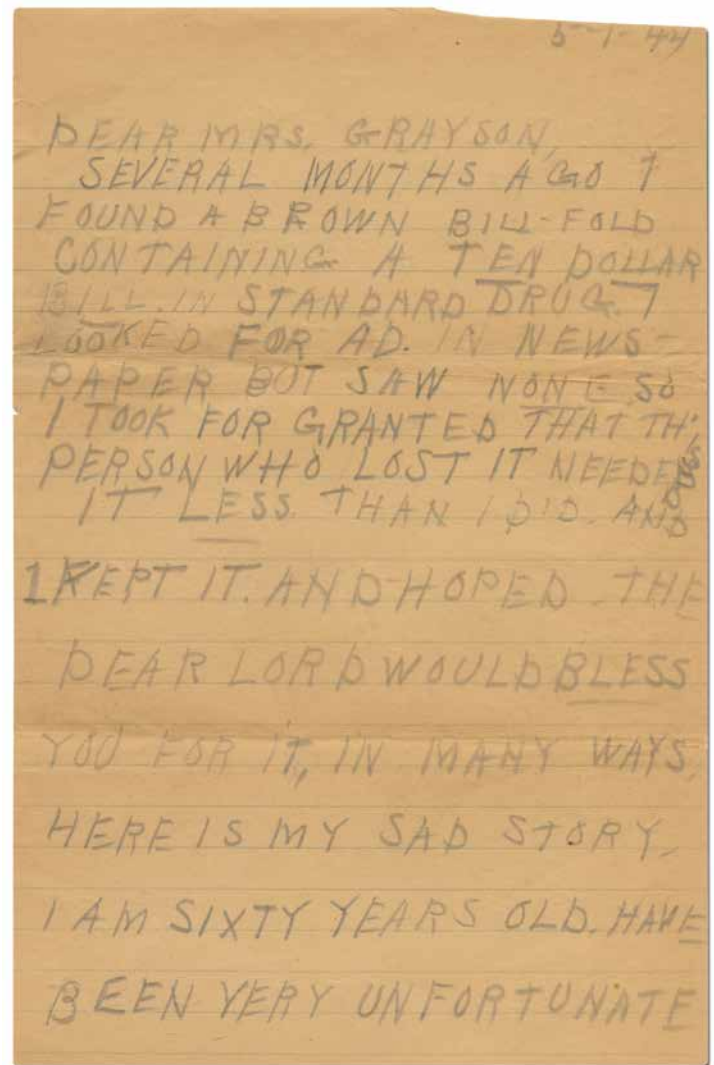 5-1-44
DEAR MRS. GRAYSON,
SEVERAL MONTHS AGO I
FOUND A BROWN BILL-FOLD
CONTAINING A TEN DOLLAR
BILL. IN STANDARD DRUG. I
LOOKED FOR AD. IN NEWS-
PAPER BUT SAW NONE SO
I TOOK FOR GRANTED THAT TH
PERSON WHO LOST IT NEEDED
IT LESS THAN I DID. AND
I KEPT IT. AND HOPED THE
DEAR LORD WOULD BLESS
YOU FOR IT, IN MANY WAYS.
HERE IS MY SAD STORY.
I AM SIXTY YEARS OLD. HAVE
BEEN VERY UNFORTUNATE